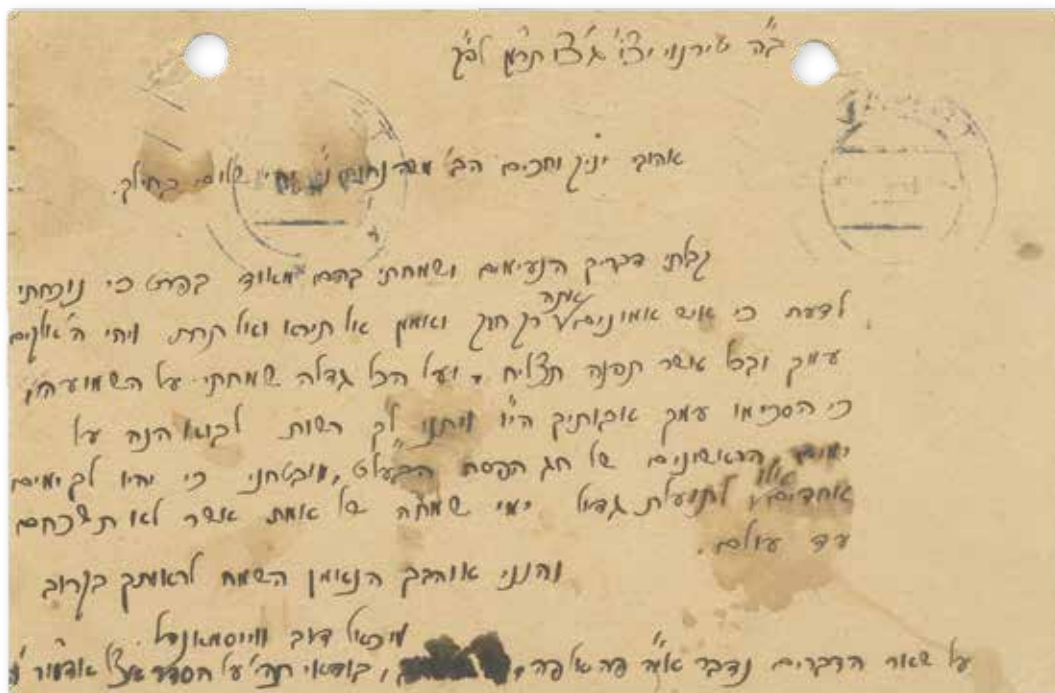 ב"ה טירנוי יצ"ו ג' צו תר"ץ לפ"ק
אהובי יניק וחכים הב' משה נחום ני' שלום כחילך.
קבלתי דבריך הנעימים ושמחתי בהם מאוד בפרט כי נוכחתי
לדעת כי איש אמונים אתה רק חזק ואמץ אל תירא ואל תחת ויהי ה' אלקים
עמך ובכל אשר תפנה תצליח, ועל הכל גדלה שמחתי על השמועה
כי הסכימו עמך אבותיך הי"ו ויתנו לך רשות לבוא הנה על
ימים הראשונים של חג הפסח הבעל"ט, מובטחני כי יהיו לך ימים
אחדים אלו לתועלת גדול ימי שמחה של אמת אשר לא תשכחם
עד עולם.
והנני אוהבך הנאמן השמח לראותך בקרוב
מיכאל דוב ווייסמאנדל
על שאר הדברים נדבר אי"ה פה אל פה, בודאי תהי' על הסדר אצל אדמו"ר